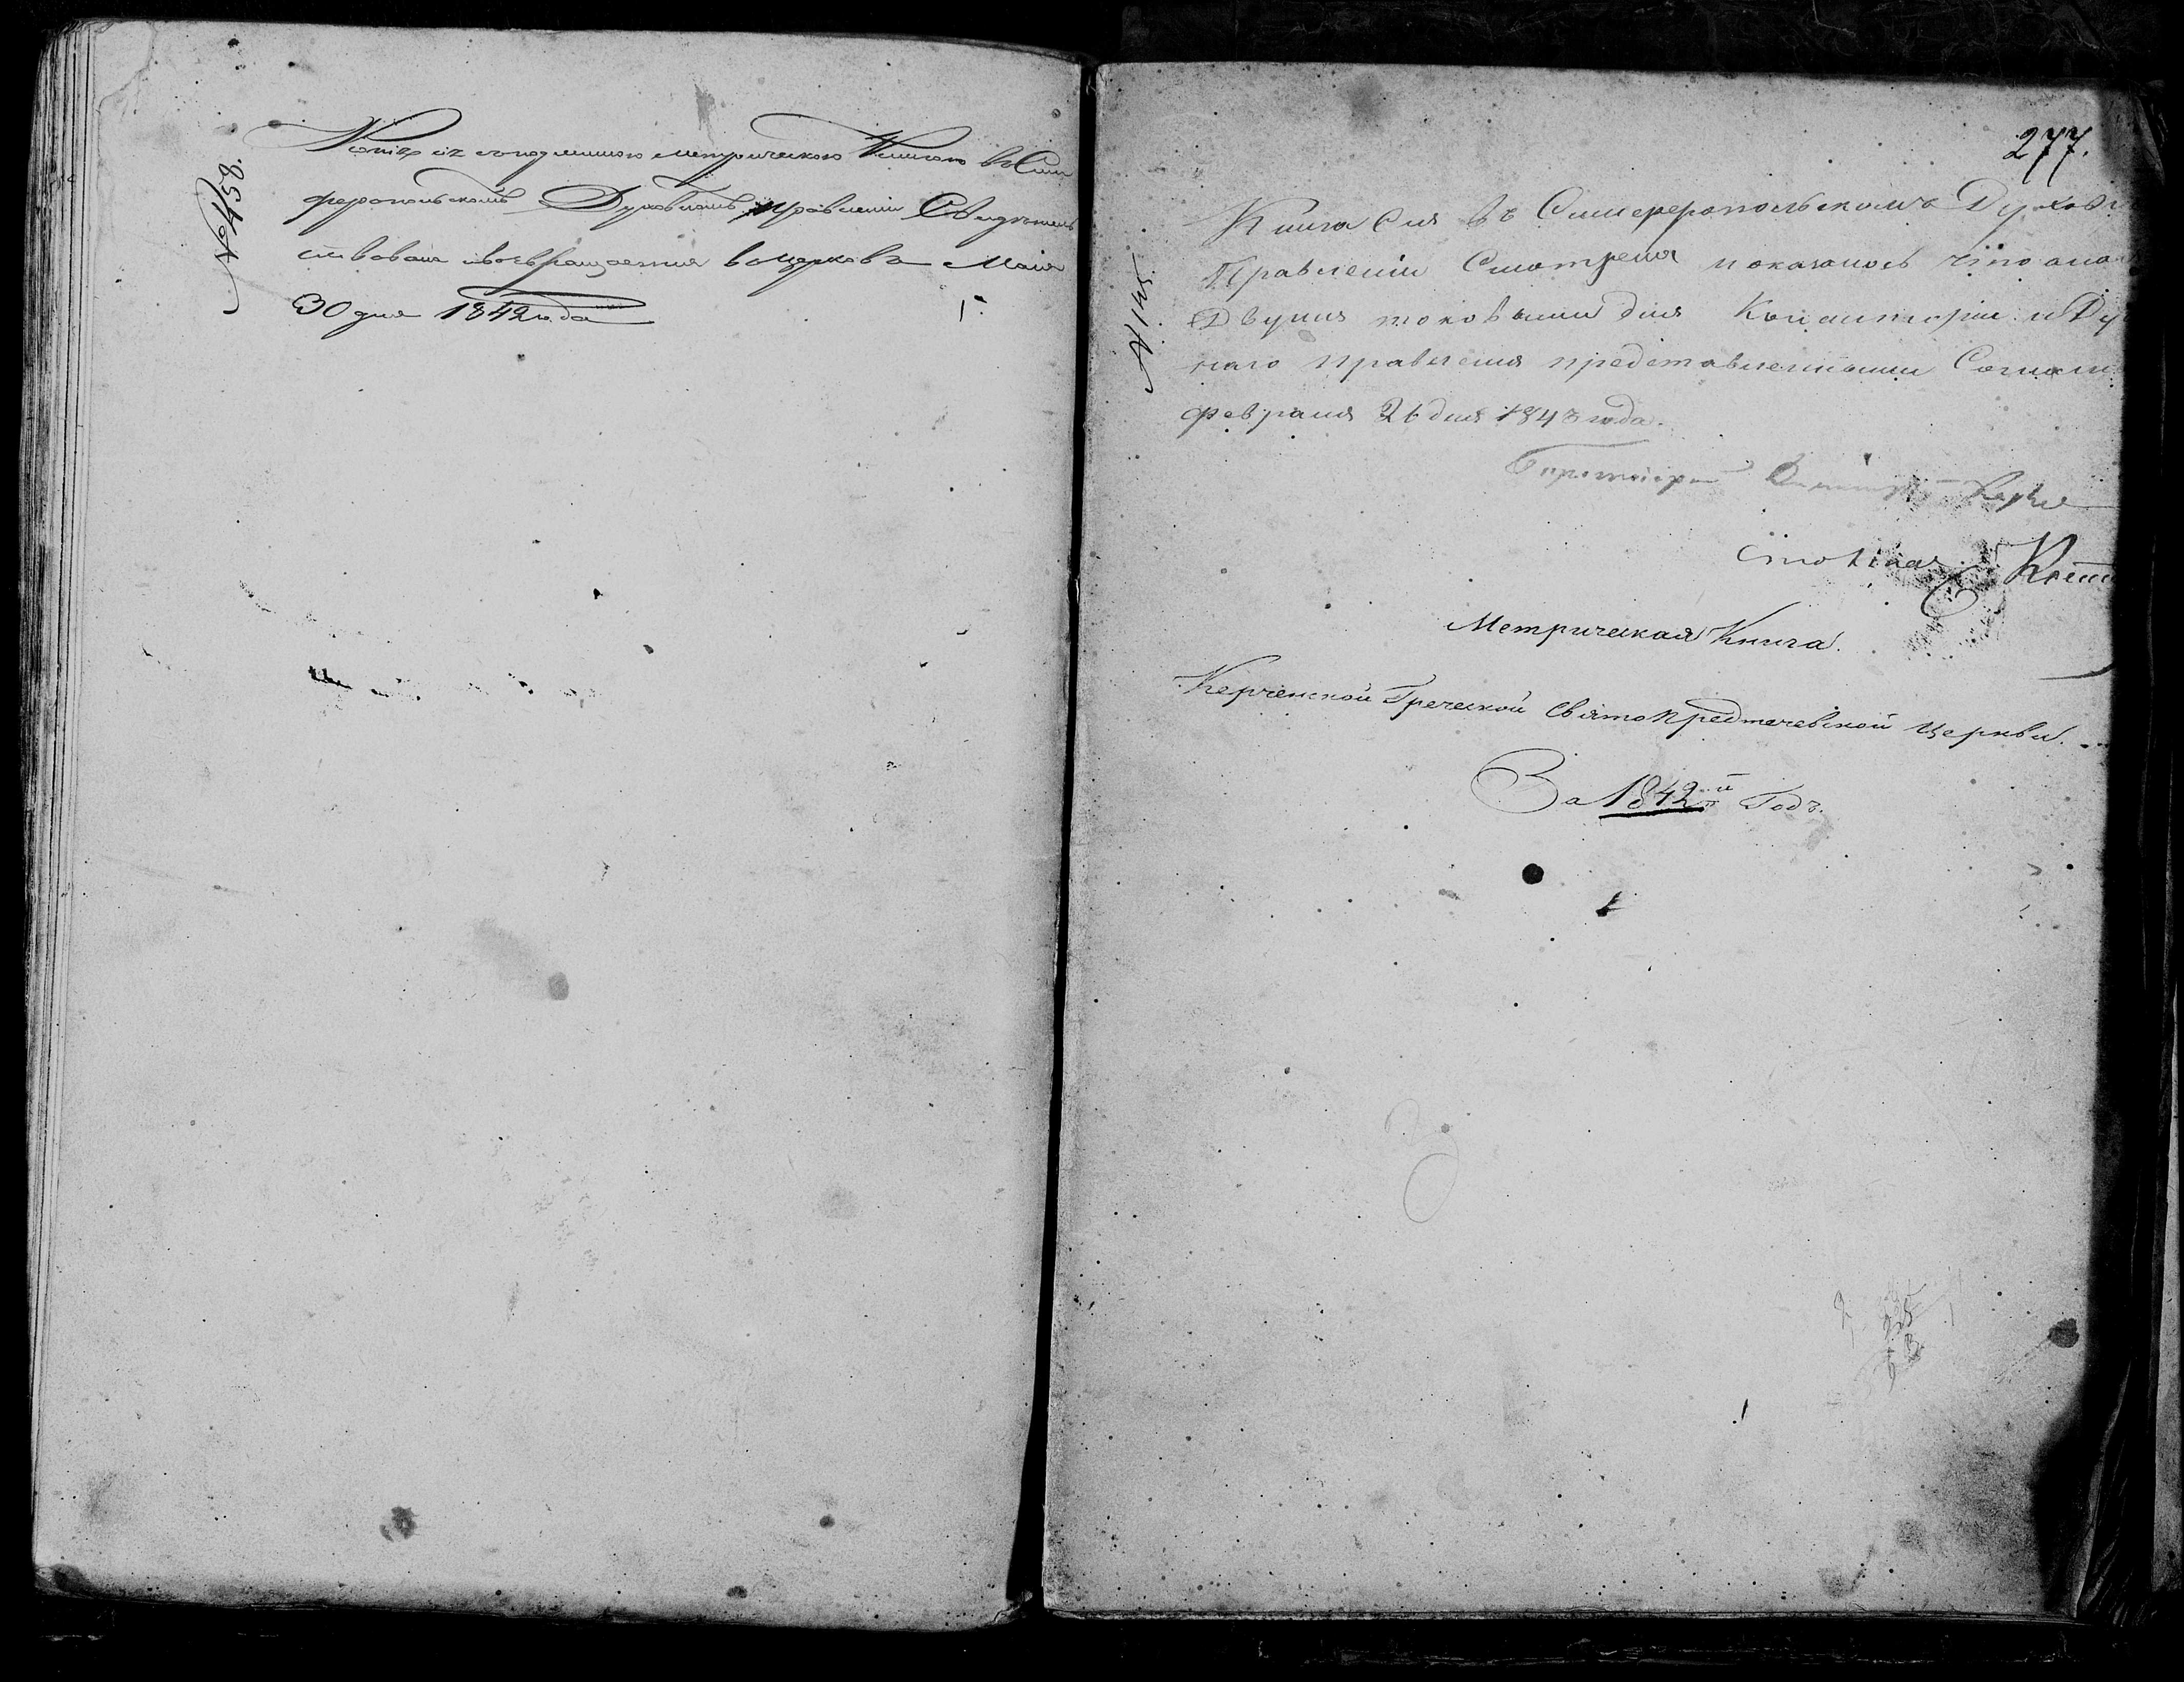 № 458.
Копія съ подлинною метрическою Книгою въ Сим
феропольскомъ Духовномъ правленіи Свидѣтель
ствована и возвращается въ церковь Маія
30 дня 1842 года
277.
№ 148
Книга Сия въ Симферопольскомъ Духов
Правленіи Смотрена и оказалось что она
Двумя таковыми для Консисторіи и Ду
наго правленія представленными Согласн
февраля 26 дня 1843 года.
Протоіерей Димитрій
Метрическая Книга.
Керченской Греческой Святопредтечевской церкви.
За 1842й Годъ.